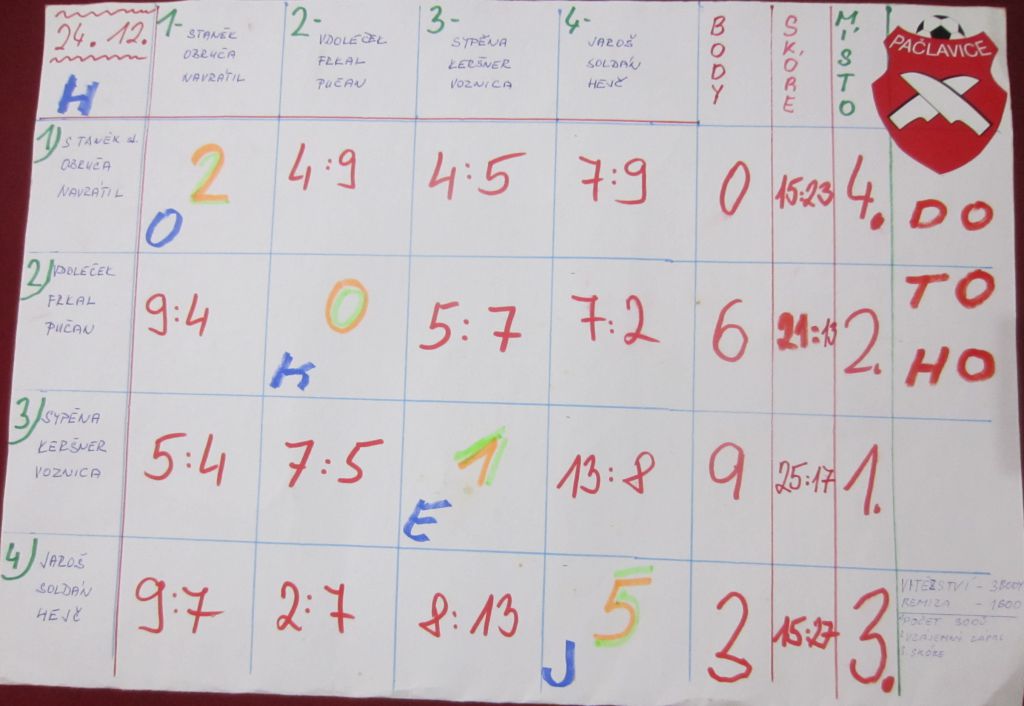 24. 12.
H
1- STANĚK
OBRUČA
NAVRÁTIL
2- VDOLEČEK
FRKAL
PUČAN
3- SYPĚNA
KERŠNER
VOZNICA
4- JAROŠ
SOLDÁN
HEJČ
BODY
SKÓRE
MÍSTO
PAČLAVICE
1) STANĚK st.
OBRUČA
NAVRÁTIL
O
2
4:9
4:5
7:9
0
15:23
4.
DO
2) VDOLEČEK
FRKAL
PUČAN
9:4
K
0
5:7
7:2
6
21:13
2.
TO
HO
3) SYPĚNA
KERŠNER
VOZNICA
5:4
7:5
E
1
13:8
9
25:17
1.
4) JAROŠ
SOLDÁN
HEJČ
9:7
2:7
8:13
J
5
3
15:27
3.
VÍTĚZSTVÍ - 3BODY
REMIZA - 1BOD
1. POČET BODŮ
2. VZÁJEMNÝ ZÁPAS
3. SKÓRE